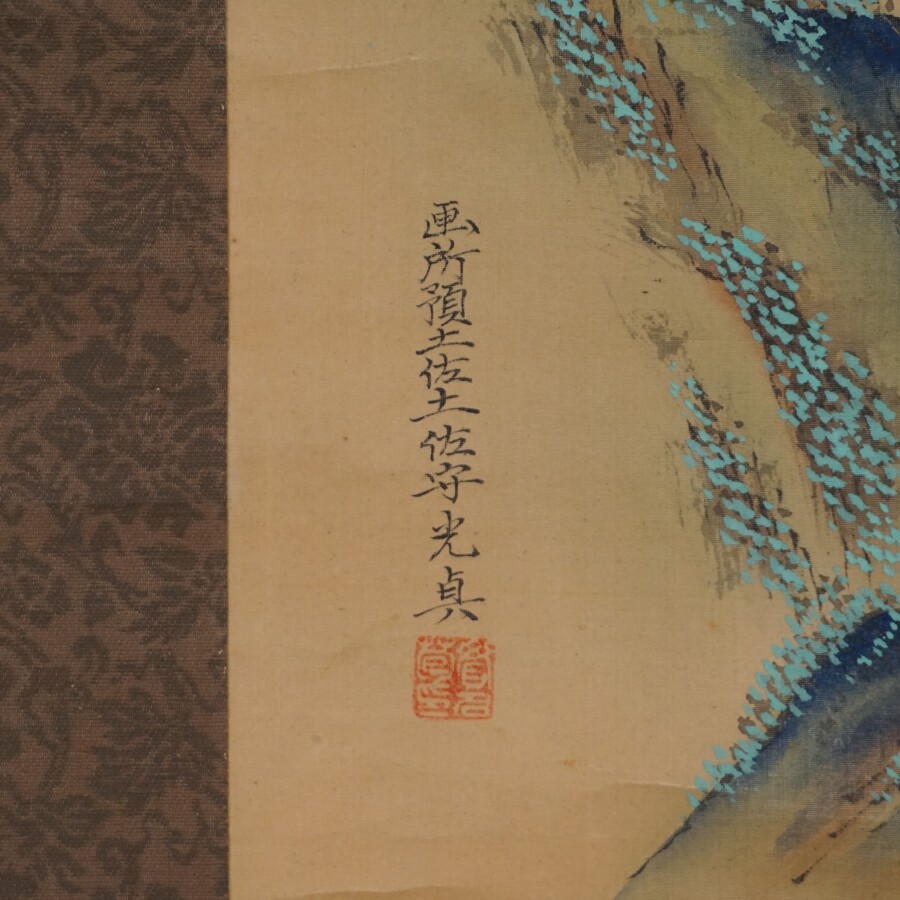 画所預土佐土佐守光貞